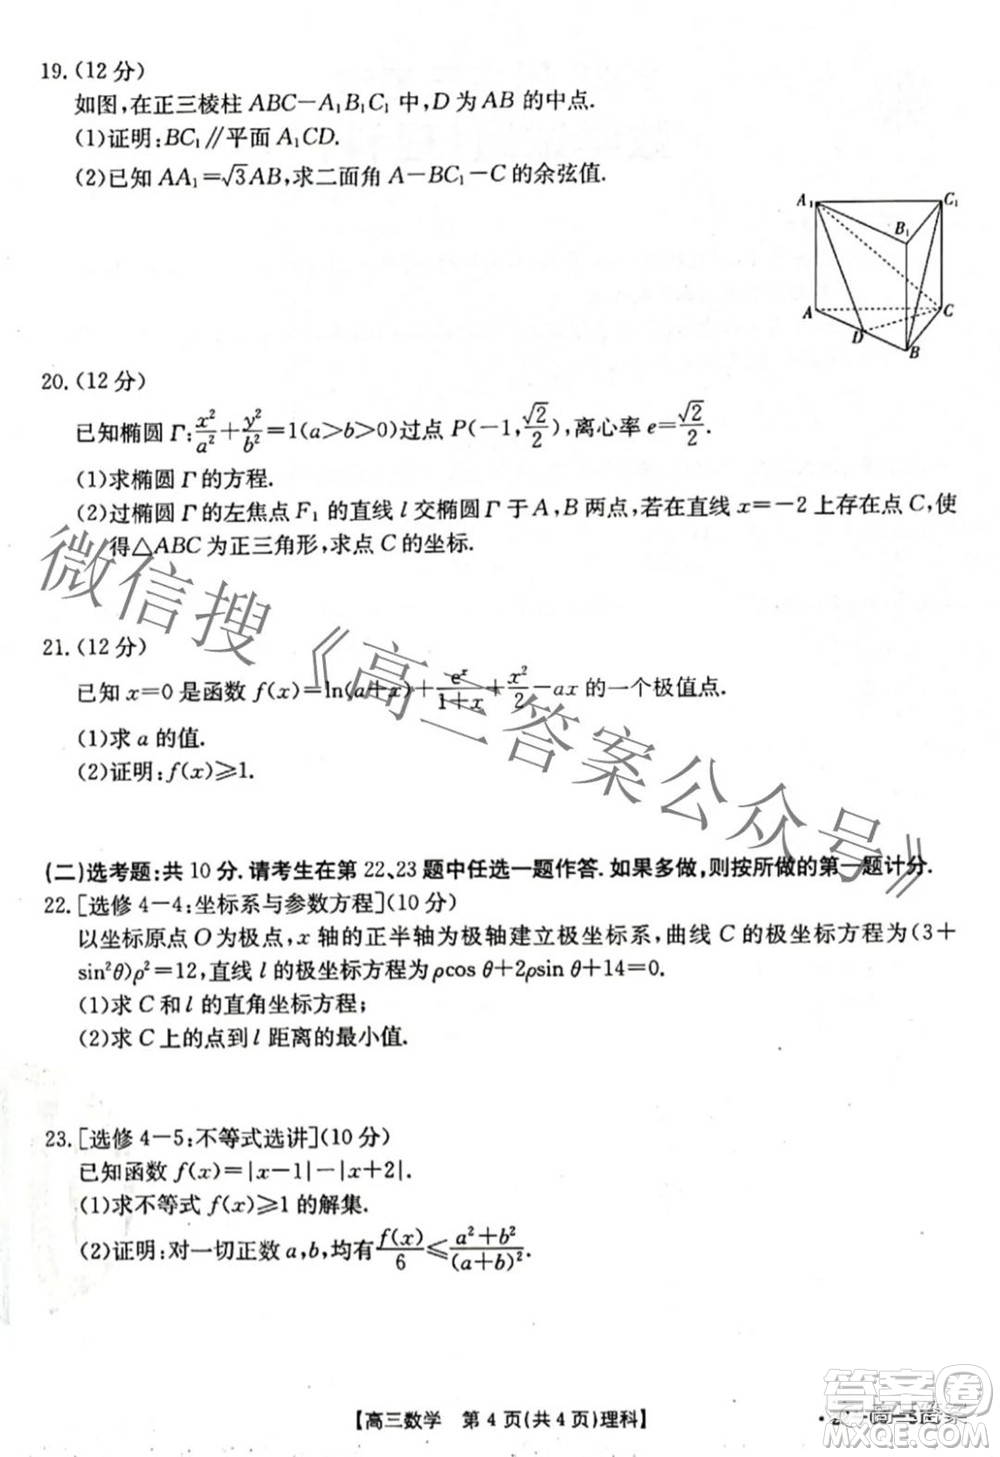 19.(12 分)
如图,在正三棱柱 ABC-A₁B₁C₁ 中,D 为 AB 的中点.
(1)证明:BC₁∥平面 A₁CD.
(2)已知 AA₁=√3AB,求二面角 A-BC₁-C 的余弦值.
A₁
C₁
B₁
A
C
D
B
20.(12 分)
已知椭圆 Γ:x²/a²+y²/b²=1(a>b>0)过点 P(-1,√2/2),离心率 e=√2/2.
(1)求椭圆 Γ 的方程.
(2)过椭圆 Γ 的左焦点 F₁ 的直线 l 交椭圆 Γ 于 A,B 两点,若在直线 x=-2 上存在点 C,使
得△ABC 为正三角形,求点 C 的坐标.
21.(12 分)
已知 x=0 是函数 f(x)=ln(a+x)+eˣ/(1+x)+x²/2-ax 的一个极值点.
(1)求 a 的值.
(2)证明:f(x)≥1.
(二)选考题:共 10 分.请考生在第 22、23 题中任选一题作答.如果多做,则按所做的第一题计分.
22.[选修 4-4:坐标系与参数方程](10 分)
以坐标原点 O 为极点,x 轴的正半轴为极轴建立极坐标系,曲线 C 的极坐标方程为(3+
sin²θ)ρ²=12,直线 l 的极坐标方程为 ρcos θ+2ρsin θ+14=0.
(1)求 C 和 l 的直角坐标方程;
(2)求 C 上的点到 l 距离的最小值.
23.[选修 4-5:不等式选讲](10 分)
已知函数 f(x)=|x-1|-|x+2|.
(1)求不等式 f(x)≥1 的解集.
(2)证明:对一切正数 a,b,均有 f(x)/6≤(a²+b²)/(a+b)².
【高三数学 第 4 页(共 4 页)理科】
微信搜《高三答案公众号》
答案圈
MXQE.COM